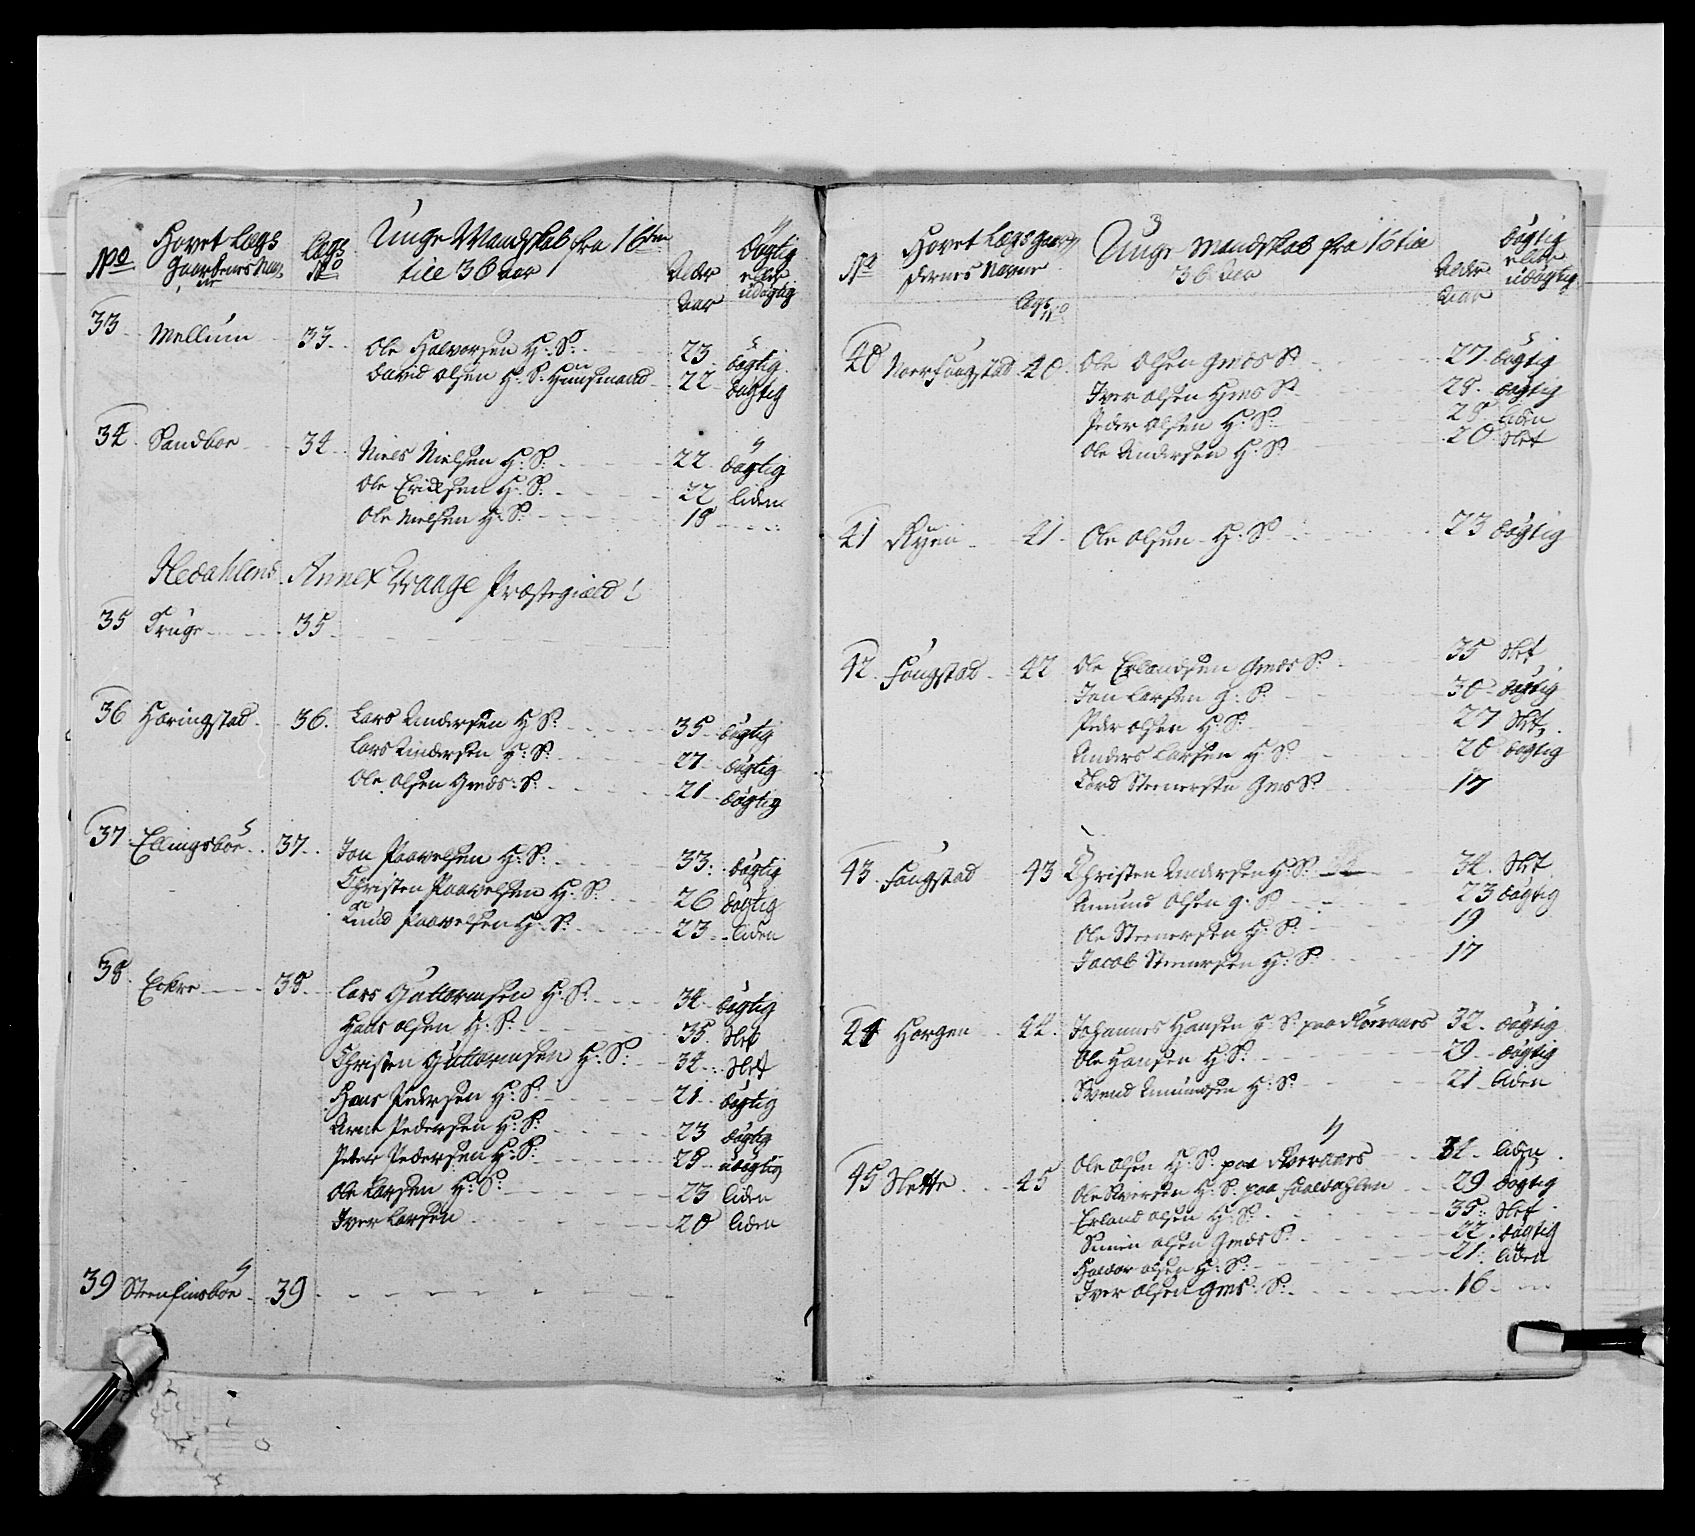 No Hovet Lægs Gaardenes Navne Lægs No Unge Mandskab fra 16ten till 36 aar Alder Aar dygtig eller udygtig
33 Mellum 33 Ole Halvorsen H: S: 23 dygtig
David Olsen H: S: Huusmand 22 dygtig
34 Sandboe 34 Niels Nielsen H: S: 22 dygtig
Ole Ericksen H: S: 22 liden
Ole Nielsen H: S: 18
Hedahlens Annex Waage Præstegield
35 Kruge 35
36 Hæringstad 36 Lars Andersen H S: 35 dygtig
Lars Andersen H: S: 27 dygtig
Ole Olsen Gmds: S: 21 dygtig
37 Ellingsboe 37 Jon Paavelsen H: S: 33 dygtig
Christen Paavelsen H: S: 26 dygtig
Knud Paavelsen H: S: 23 liden
38 Eckre 38 Lars Guttormsen H: S: 34 dygtig
Hans Olsen H: S: 35 Slet
Christen Guttormsen H: S: 34 Slet
Hans Pedersen H: S: 21 dygtig
Arne Pedersen H: S: 23 dygtig
Peder Pedersen H: S: 28 udygtig
Ole Larsen H: S: 23 liden
Iver Larsen 20 liden
39 Steenfinsboe 39
No Hovet Lægs Gaardernes Navne Lægs No Unge Mandskab fra 16 till 36 Aar Alder Aar dygtig eller udygtig
40 Noer Faugstad 40 Ole Olsen Gmds S: 27 dygtig
Iver Olsen Gmds S: 28 dygtig
Peder Olsen H: S: 28 liden
Ole Andersen H: S: 20 Slet
41 Ryen 41 Ole Olsen H: S: 23 dygtig
42 Faugstad 42 Ole Erlandsen Gmds S: 35 Slet
Jon Larsen G: S: 30 dygtig
Peder Olsen H: S: 27 Slet
Anders Larsen H: S: 20 dygtig
Tord Steenersen Gms S: 17
43 Faugstad 43 Christen Andersen H: S: 34 Slet
Amund Olsen G: S 23 dygtig
Ole Steenersen H: S: 19
Jacob Steenersen H: S: 17
44 Horgen 44 Johannes Hansen H: S: paa 32 dygtig
Ole Hansen H: S: 29 dygtig
Svend Amundsen H: S: 21 liden
45 Slette 45 Ole Olsen H: S: paa 34 liden
Ole Iversen H: S: paa 29 dygtig
Erland Olsen H: S: 35 Slet
Simen Olsen Gmds S: 22 dygtig
Haldor Olsen H: S: 21 liden
Iver Olsen Gms: S: 16